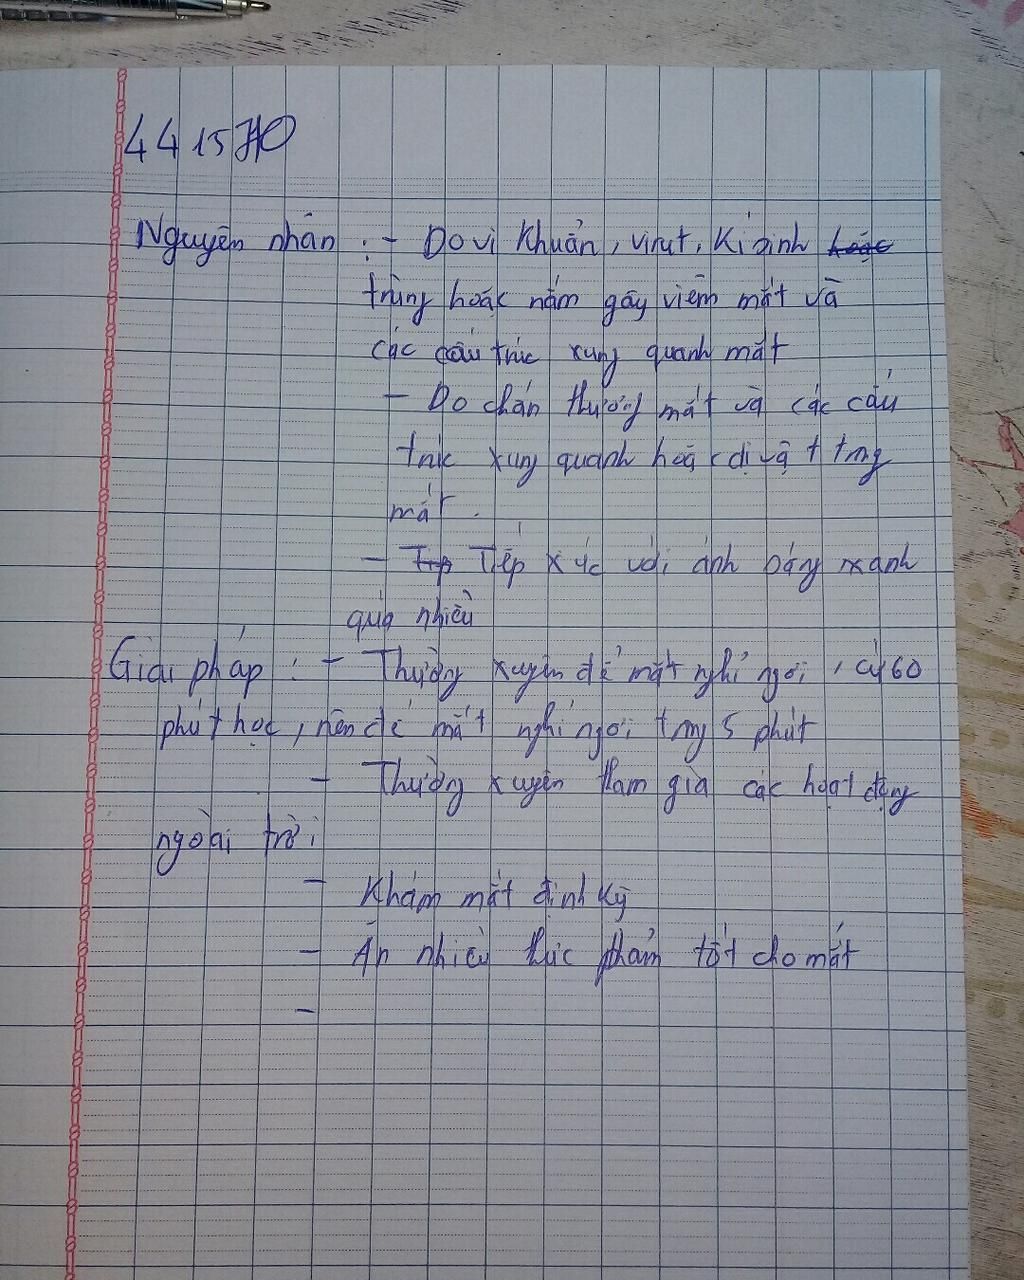 4415
Nguyên nhân : - Do vi khuẩn, virut, kí sinh hoặc
trùng hoặc nấm gây viêm mắt và
các cấu trúc xung quanh mắt
- Do chấn thương mắt và các cấu
trúc xung quanh hoặc dị vật trong
mắt.
- Tip Tiếp xúc với ánh sáng xanh
quá nhiều
Giải pháp : - Thường xuyên để mắt nghỉ ngơi, cứ 60
phút học, nên để mắt nghỉ ngơi trong 5 phút
- Thường xuyên tham gia các hoạt động
ngoài trời
- Khám mắt định kỳ
- Ăn nhiều thực phẩm tốt cho mắt
-